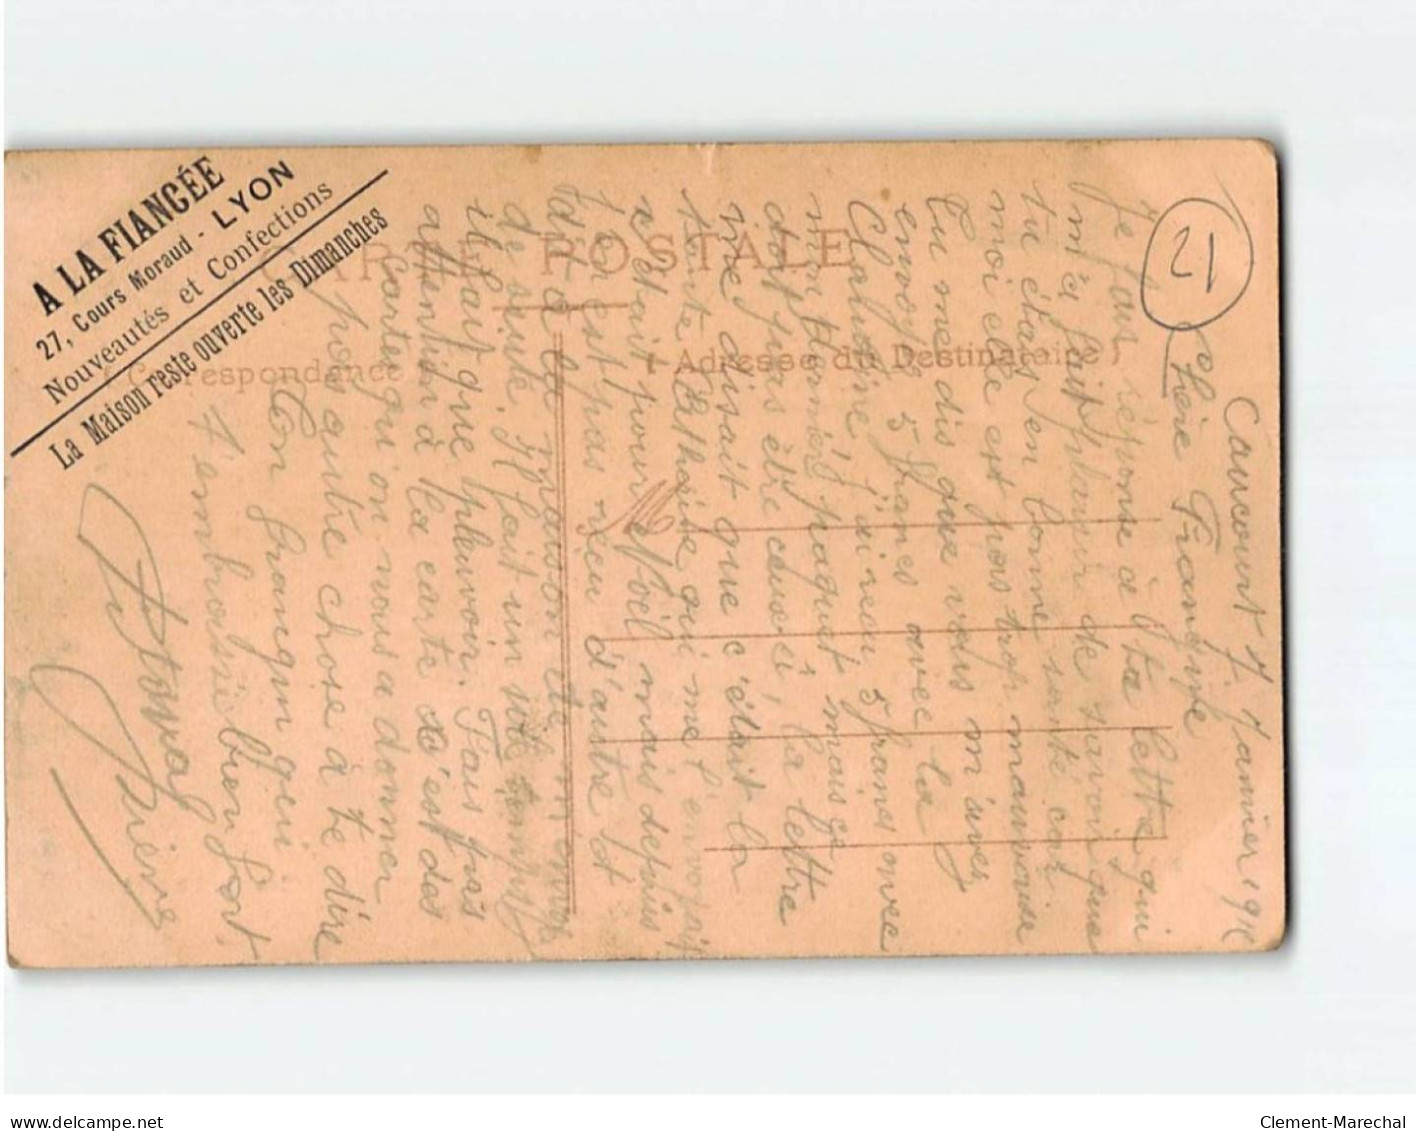 A LA FIANCÉE
27, Cours Moraud - LYON
Nouveautés et Confections
La Maison reste ouverte les Dimanches
CARTE POSTALE
Correspondance
Adresse du Destinataire
21
Cancourt 7 Janvier 191
Chère Françoise
Je fais réponse à ta lettre qui
m'a fait plaisir de savoir que
tu étais en bonne santé car
moi elle est pas trop mauvaise
Tu me dis que vous m'avez
envoyé 5 franes avec la
Claudine j'ai reçu 5 franes avec
mon paquet mais ça
doit pas être ceusi, la lettre
me disait que c'était la
tante qui me l'envoyait
c'était pour Noël mais depuis
j'en est pas reçu d'autre
à la maison
de suite, il fait un temps
il fait que pleuvoir. Fais pas
attention à la carte c'est des
cartes qu'on nous a donner
pas autre chose à te dire
Ton frangin qui
t'embrasse bien fort